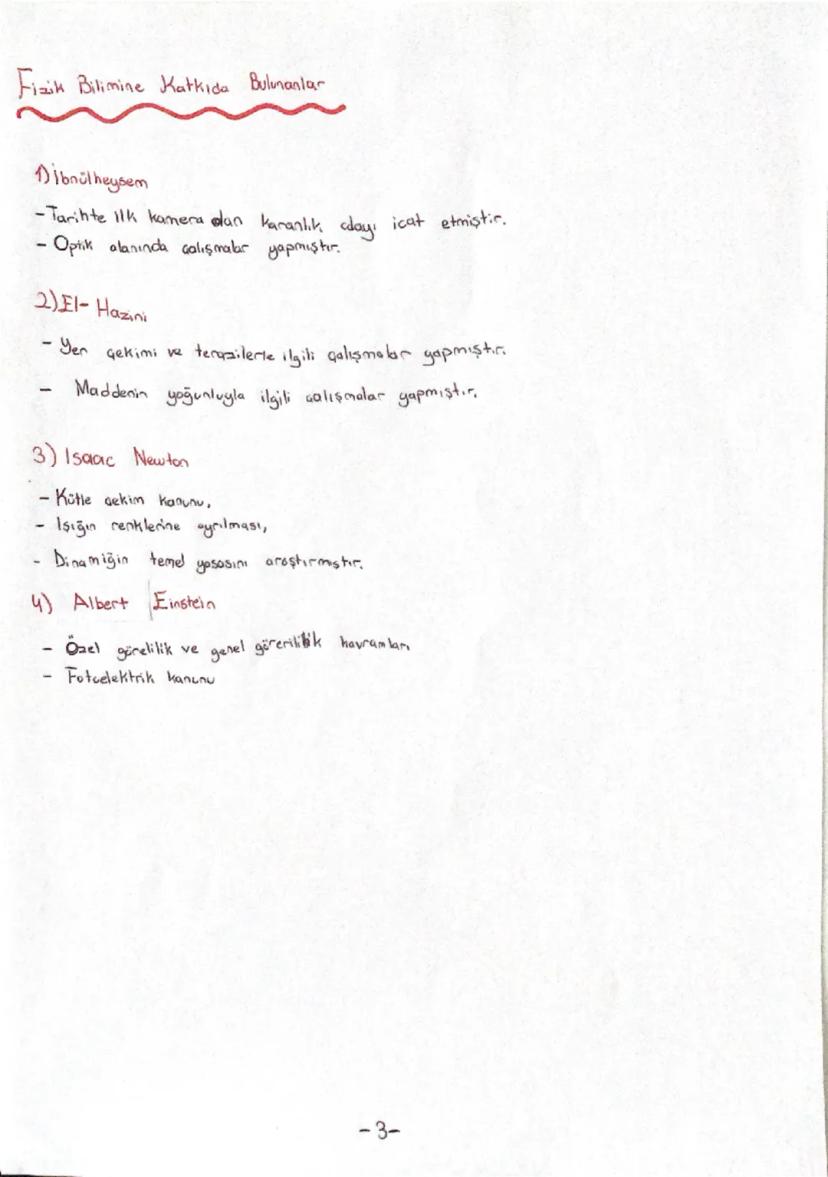 Fizik Bilimine Katkıda Bulunanlar
1) İbnülheysem
- Tarihte ilk kamera olan karanlık odayı icat etmiştir.
- Optik alanında çalışmalar yapmıştır.
2) El- Hazini
- Yer çekimi ve terazilerle ilgili çalışmalar yapmıştır.
- Maddenin yoğunluyla ilgili çalışmalar yapmıştır.
3) Isaac Newton
- Kütle çekim kanunu,
- Işığın renklerine ayrılması,
- Dinamiğin temel yasasını araştırmıştır.
4) Albert Einstein
- Özel görelilik ve genel görerililik kavramları
- Fotoelektrik kanunu
-3-